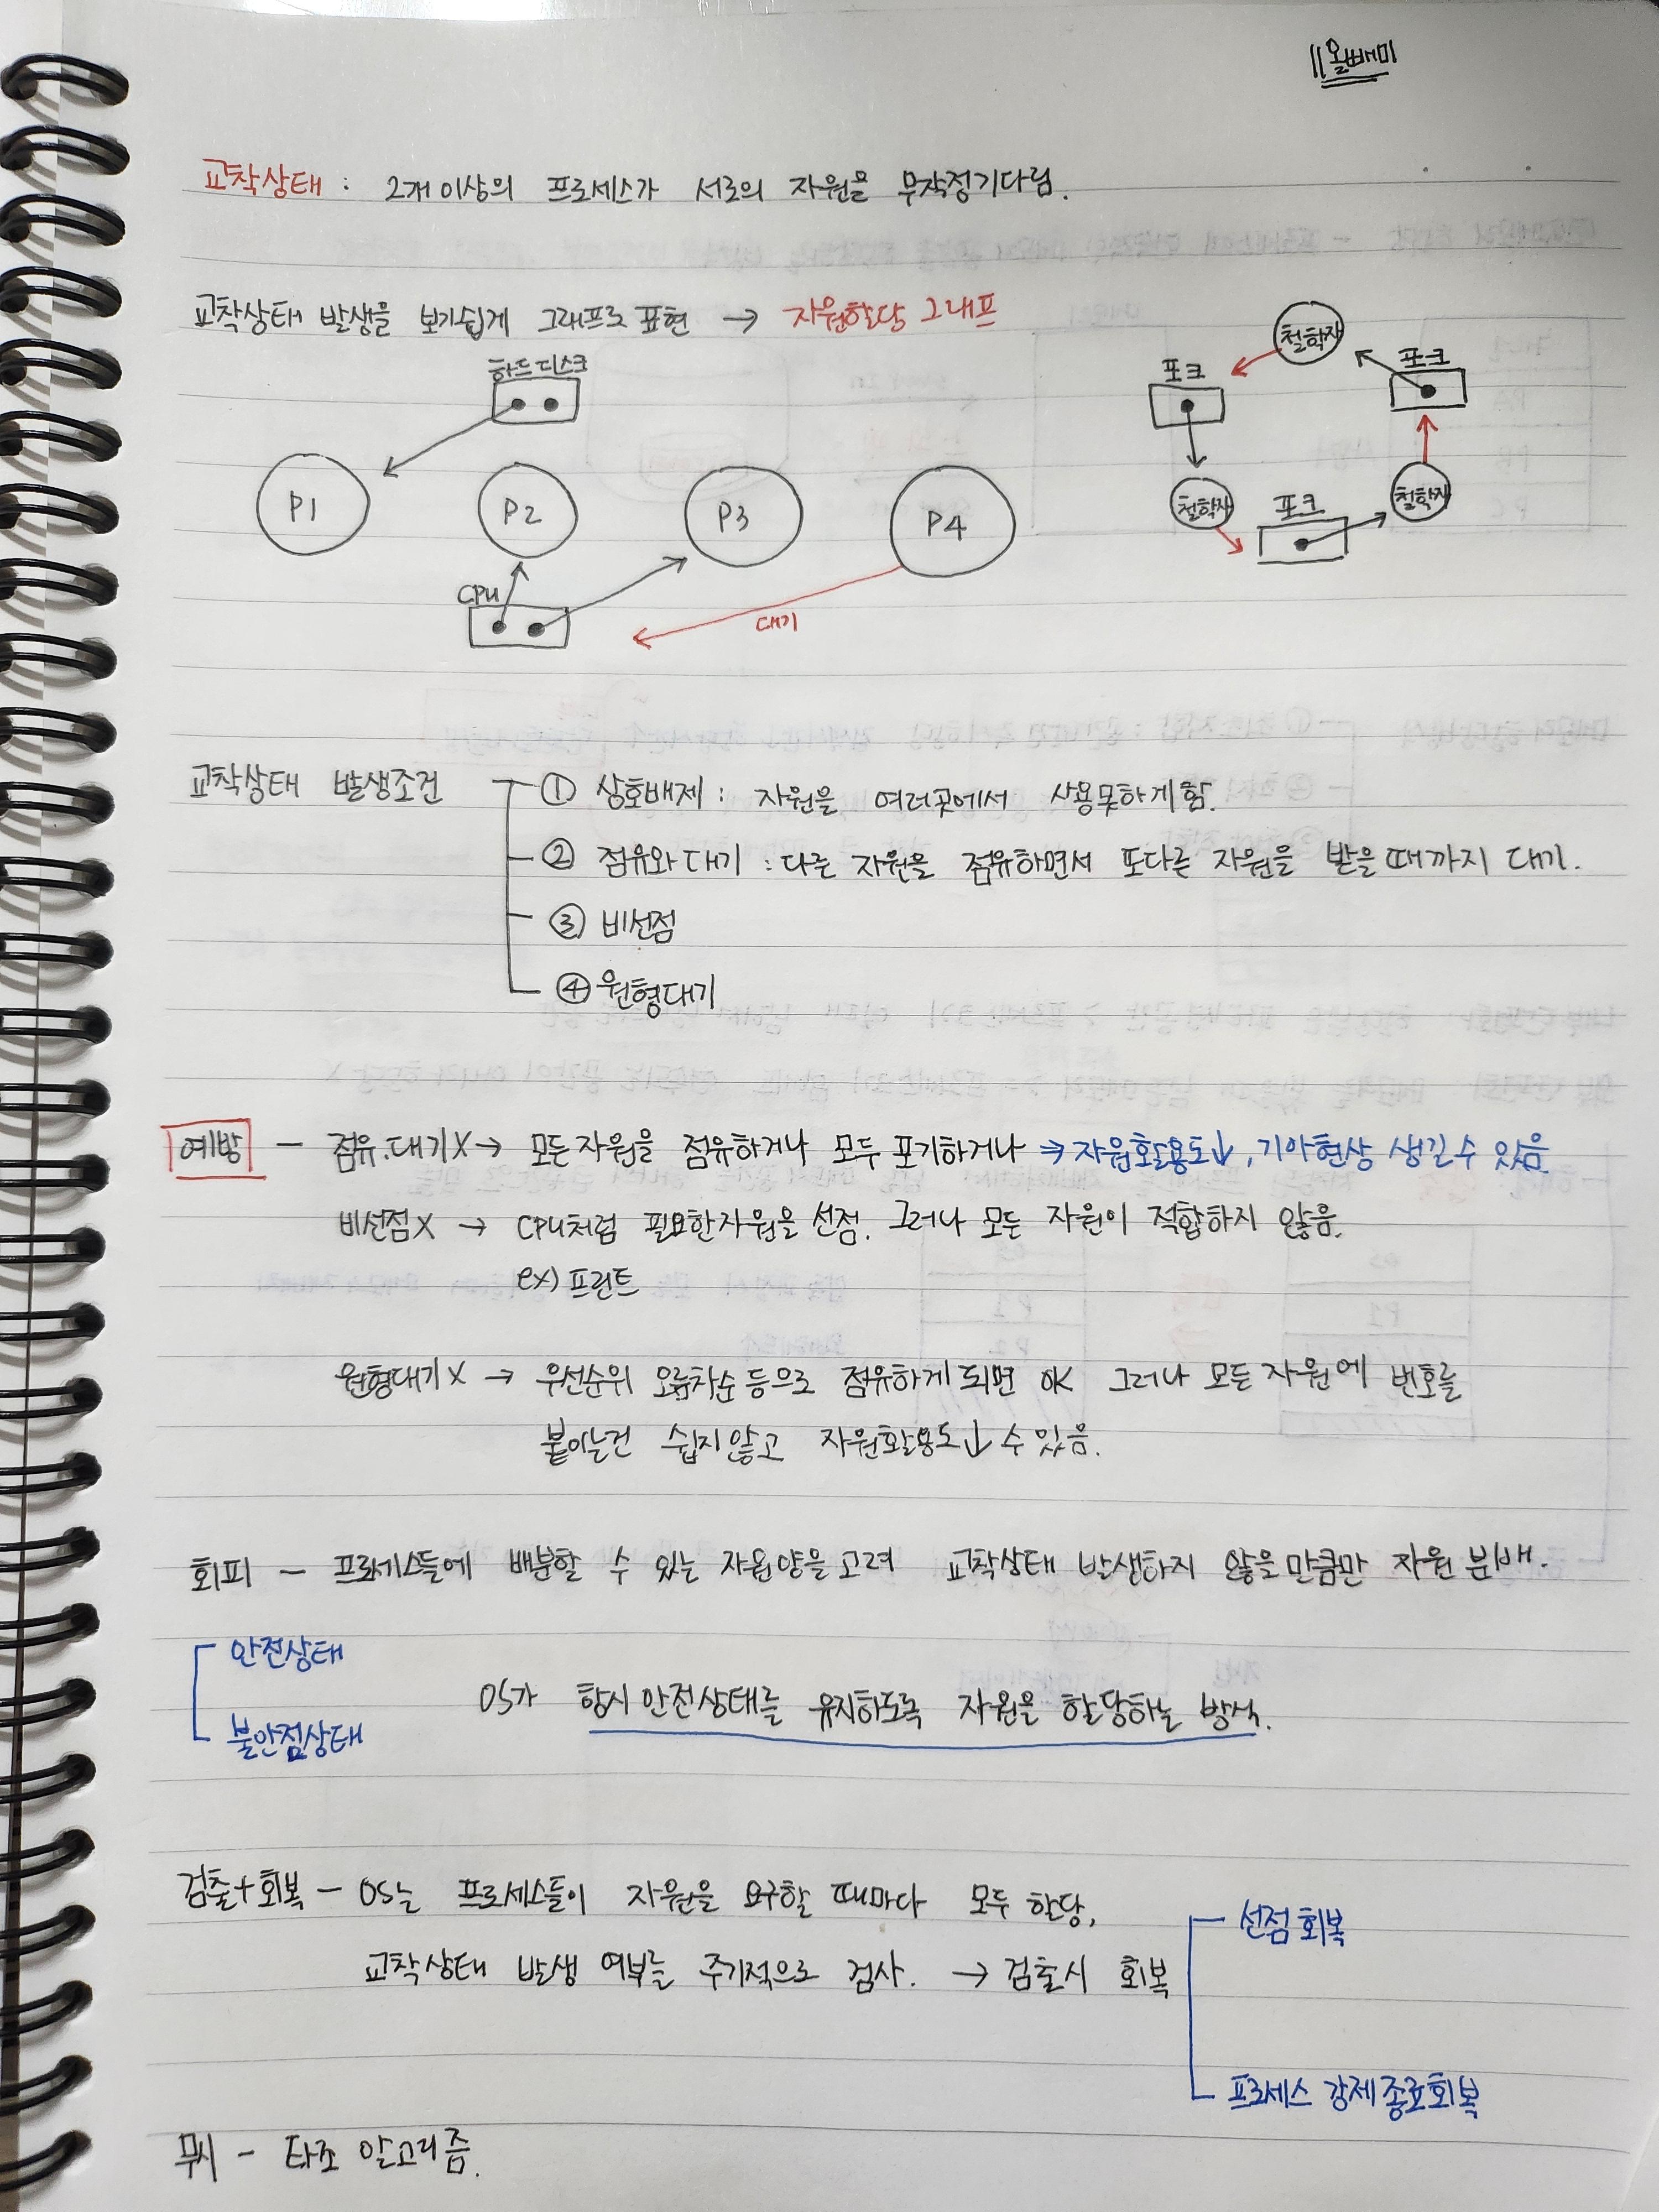 올빼미
교착상태 : 2개 이상의 프로세스가 서로의 자원을 무작정기다림.
교착상태 발생을 보기쉽게 그래프로 표현 → 자원할당 그래프
하드디스크
P1
P2
P3
P4
CPU
대기
철학자
포크
포크
철학자
포크
철학자
교착상태 발생조건
① 상호배제 : 자원을 여러곳에서 사용못하게함.
② 점유와대기 : 다른 자원을 점유하면서 또다른 자원을 받을때까지 대기.
③ 비선점
④ 원형대기
예방 - 점유.대기X → 모든자원을 점유하거나 모두 포기하거나 ⇒ 자원활용도↓, 기아현상 생길수 있음.
비선점X → CPU처럼 필요한자원을 선점. 그러나 모든 자원이 적합하지 않음.
ex) 프린트
원형대기X → 우선순위 오름차순 등으로 점유하게되면 OK 그러나 모든 자원에 번호를
붙이는건 쉽지않고 자원활용도↓ 수있음.
회피 - 프로세스들에 배분할 수 있는 자원양을고려 교착상태 발생하지 않을만큼만 자원 분배.
안전상태
불안점상태
OS가 항시 안전상태를 유지하도록 자원을 할당하는 방식.
검출+회복 - OS는 프로세스들이 자원을 요구할 때마다 모두 할당,
교착상태 발생 여부를 주기적으로 검사. → 검출시 회복
선점 회복
프로세스 강제종료회복
무시 - 타조 알고리즘.